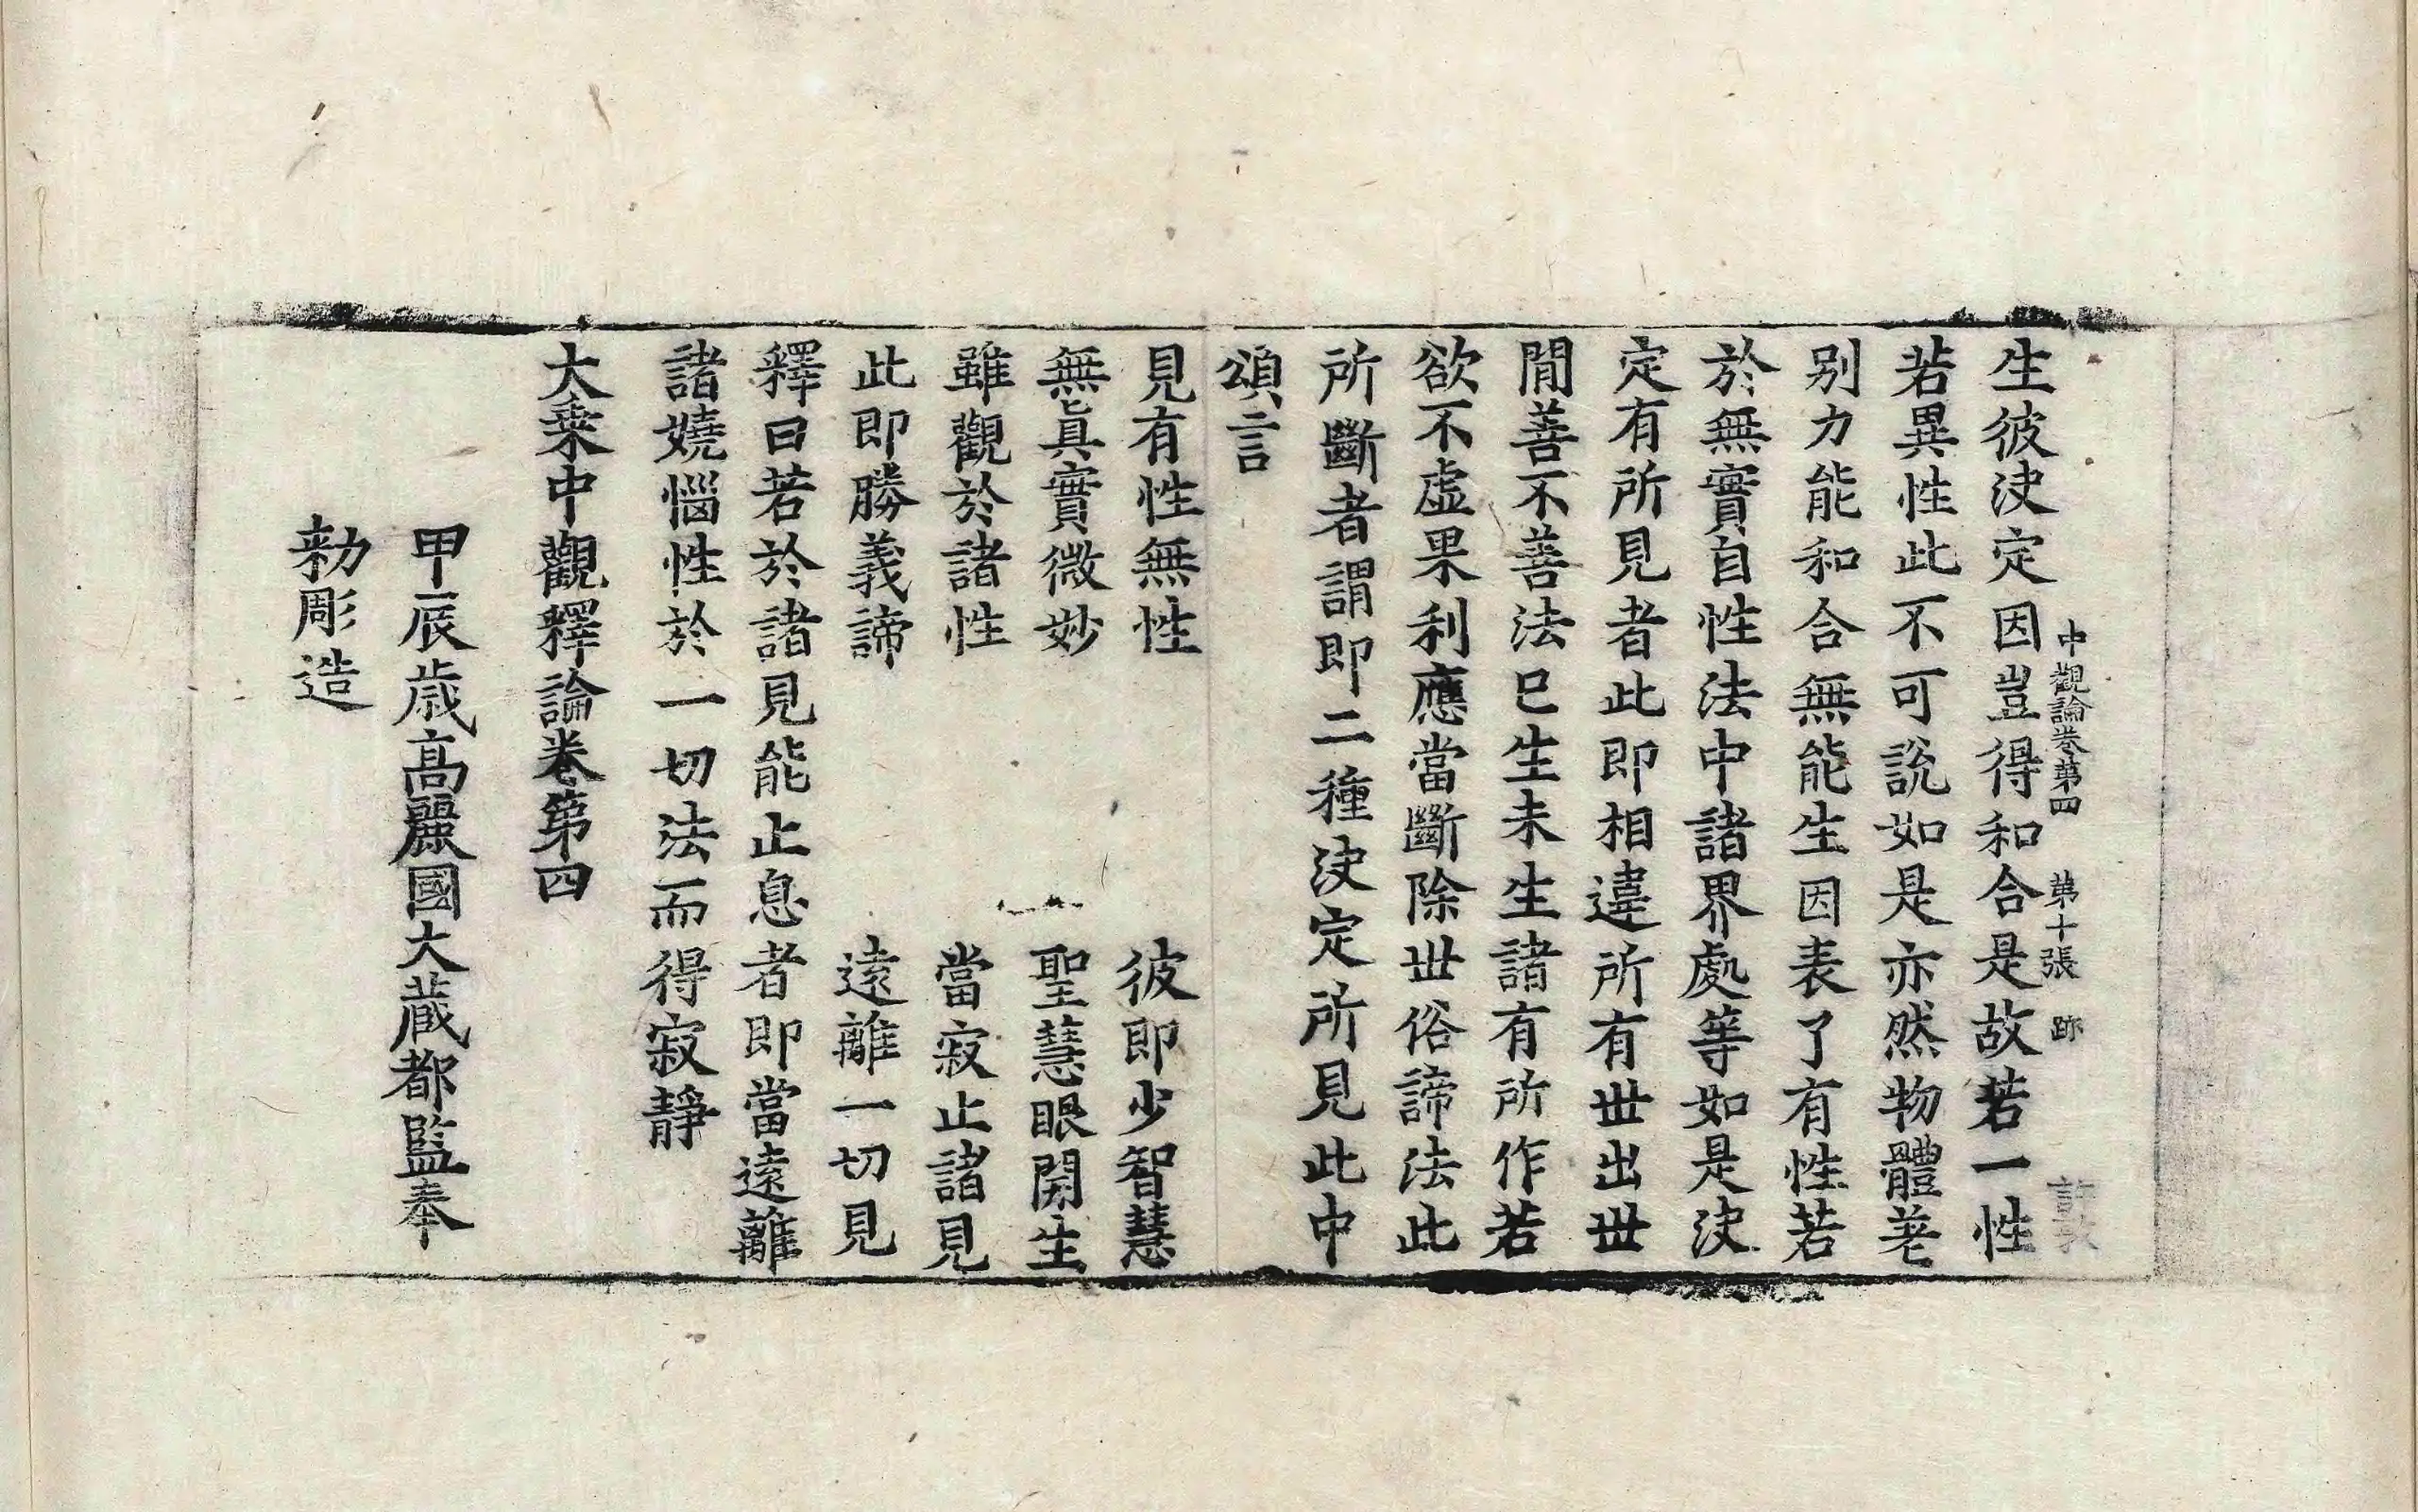 中觀論卷第四 第十張 跡
生彼決定因豈得和合是故若一性
若異性此不可說如是亦然物體差
別力能和合無能生因表了有性若
於無實自性法中諸界處等如是決
定有所見者此即相違所有世出世
閒善不善法已生未生諸有所作若
欲不虛果利應當斷除世俗諦法此
所斷者謂即二種決定所見此中
頌言
見有性無性 彼即少智慧
無眞實微妙 聖慧眼開生
雖觀於諸性 當寂止諸見
此即勝義諦 遠離一切見
釋曰若於諸見能止息者即當遠離
諸嬈惱性於一切法而得寂靜
大乘中觀釋論卷第四
甲辰歲高麗國大藏都監奉
勑彫造